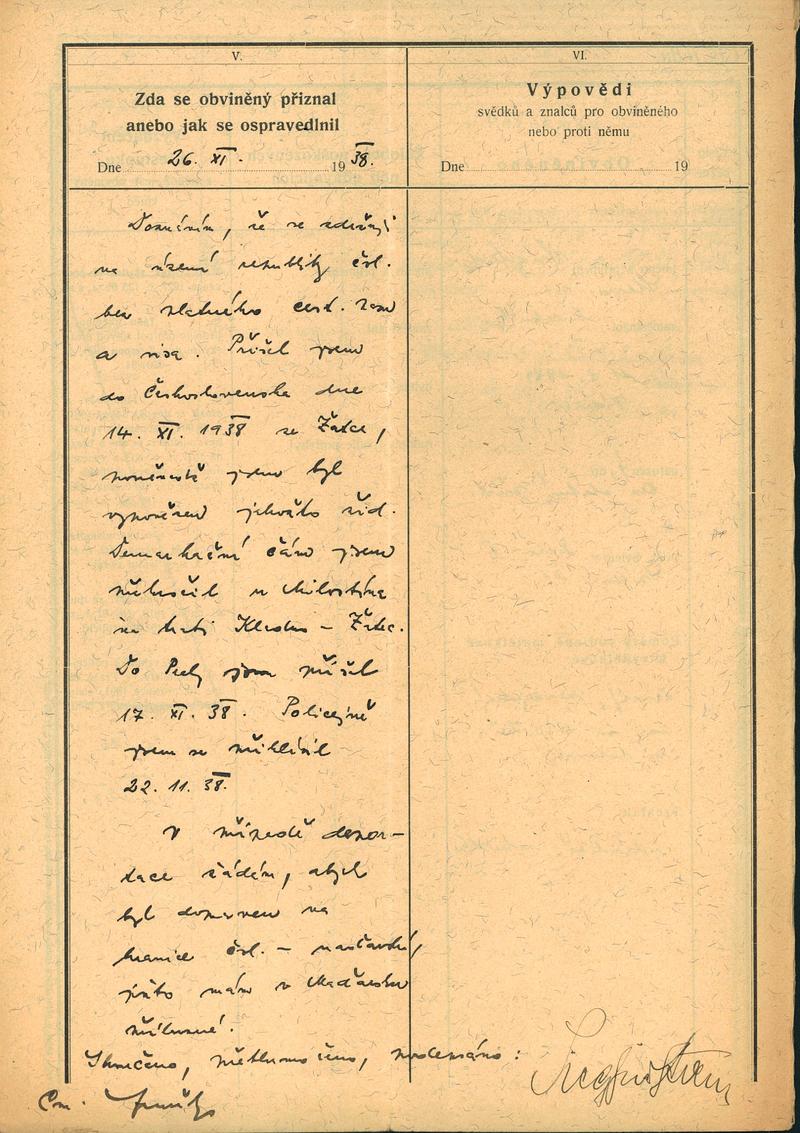 V.
Zda se obviněný přiznal
anebo jak se ospravedlnil
Dne 26. XI. 1938
VI.
Výpovědi
svědků a znalců pro obviněného
nebo proti němu
Dne 19
Doznávám, že se zdržuji
na území republiky čsl.
bez platného cest. pasu
a visa. Přišel jsem
do Československa dne
14. XI. 1938 ze Žatce,
poněvadž jsem byl
vypovězen jakožto žid.
Demarkační čáru jsem
překročil u Milostína
na trati Kladno – Žatec.
Do Prahy jsem přišel
17. XI. 38. Policejně
jsem se přihlásil
22. 11. 38.
V případě depor-
tace žádám, abych
byl dopraven na
hranice čsl. – maďarské,
ježto mám v Maďarsku
příbuzné.
Skončeno, přetlumočeno, podepsáno: